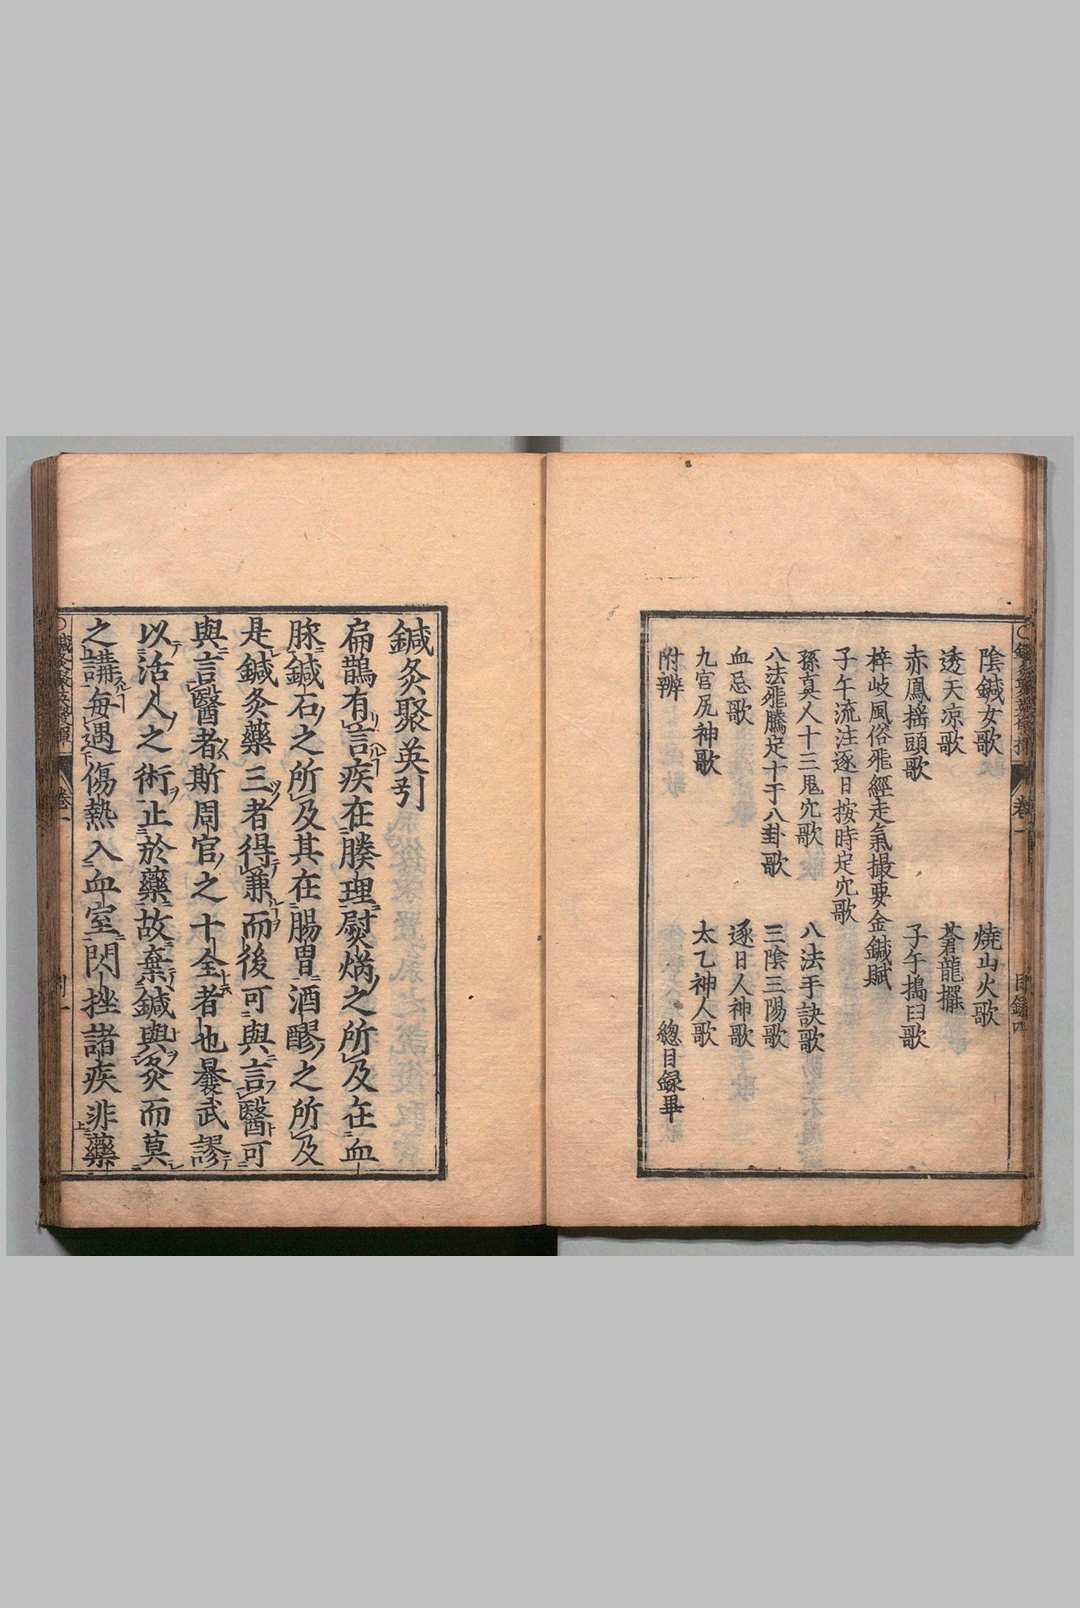 陰鍼女歌　燒山火歌
透天凉歌　蒼龍擺
赤鳳揺頭歌　子午搗臼歌
梓岐風俗飛經走氣撮要金鍼賦
子午流注逐日按時定穴歌
孫真人十三鬼穴歌　八法手訣歌
八法飛騰定十干八卦歌　三陰三陽歌
血忌歌　逐日人神歌
九宮尻神歌　太乙神人歌
附辨　總目録畢
鍼灸聚英引
扁鵲有言疾在腠理熨焫之所及在血
脉鍼石之所及其在腸胃酒醪之所及
是鍼灸藥三者得兼而後可與言醫可
與言醫者斯周官之十全者也曩武謬
以活人之術止於藥故棄鍼與灸而莫
之講毎遇傷熱入血室閃挫諸疾非藥